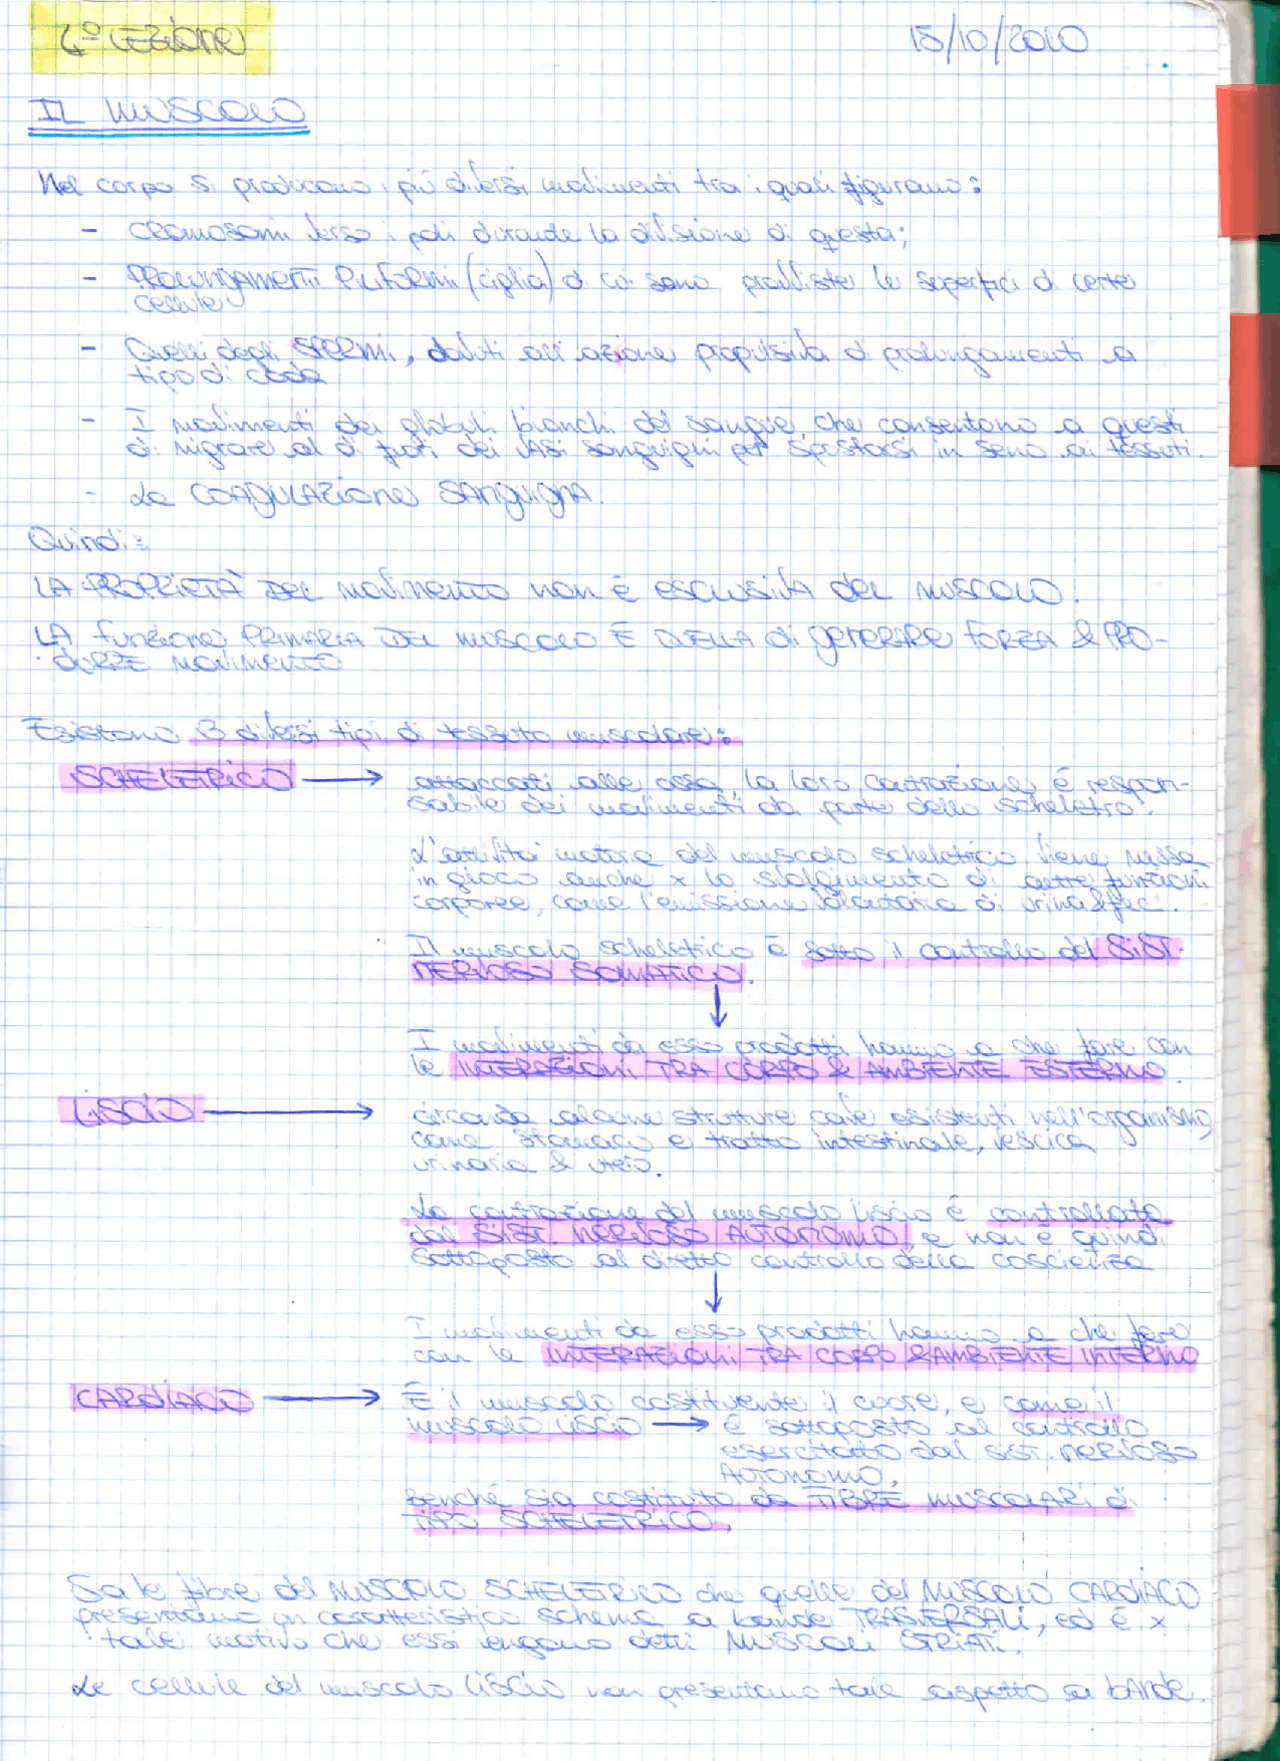 4º LEZIONE
18/10/2010
IL MUSCOLO
Nel corpo si producono i più diversi movimenti tra i quali figurano:
- CROMOSOMI verso i poli durante la divisione di questa;
- PROLUNGAMENTI PILIFORMI (ciglia) di cui sono provviste le superfici di certe
cellule
- Quelli degli SPERMI, dovuti all'azione propulsiva di prolungamenti a
tipo di coda
- I movimenti dei globuli bianchi del sangue che consentono a questi
di migrare al di fuori dei vasi sanguigni per spostarsi in seno ai tessuti.
- La COAGULAZIONE SANGUIGNA.
Quindi:
LA PROPRIETÀ DEL MOVIMENTO NON È ESCLUSIVA DEL MUSCOLO.
LA FUNZIONE PRIMARIA DEL MUSCOLO È QUELLA DI GENERARE FORZA & PRO-
DURRE MOVIMENTO
Esistono 3 diversi tipi di tessuto muscolare:
SCHELETRICO → attaccati alle ossa, la loro contrazione è respon-
sabile dei movimenti da parte dello scheletro.
L'attività motora del muscolo scheletrico viene messa
in gioco anche x lo svolgimento di altre funzioni
corporee, come l'emissione volontaria di urina & feci.
Il muscolo scheletrico è sotto il controllo del SIST.
NERVOSO SOMATICO.
↓
I movimenti da esso prodotti hanno a che fare con
le INTERAZIONI TRA CORPO & AMBIENTE ESTERNO
LISCIO → circonda alcune strutture cave esistenti nell'organismo,
come stomaco e tratto intestinale, vescica
urinaria & utero.
La contrazione del muscolo liscio è controllata
dal SIST. NERVOSO AUTONOMO, e non è quindi
sottoposto al diretto controllo della coscienza
↓
I movimenti da esso prodotti hanno a che fare
con le INTERAZIONI TRA CORPO & AMBIENTE INTERNO
CARDIACO → È il muscolo costituente il cuore, e come il
muscolo liscio → è sottoposto al controllo
esercitato dal sist. NERVOSO
AUTONOMO,
benché sia costituito da FIBRE MUSCOLARI di
TIPO SCHELETRICO.
Sa le fibre del MUSCOLO SCHELETRICO che quelle del MUSCOLO CARDIACO
presentano un caratteristico schema a bande TRASVERSALI, ed è x
tale motivo che essi vengono detti MUSCOLI STRIATI.
Le cellule del muscolo LISCIO non presentano tale aspetto a bANDE.